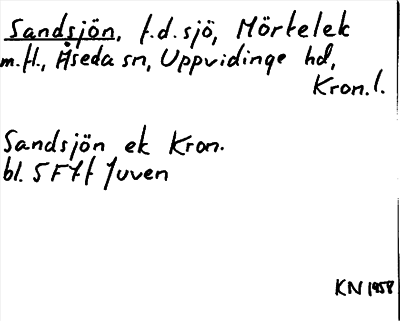 Sandsjön, f.d. sjö, Mörtelek
m.fl., Åseda sn, Uppvidinge hd,
Kron.l.
Sandsjön ek Kron.
bl. 5 F 7 f Juven
KN 1958